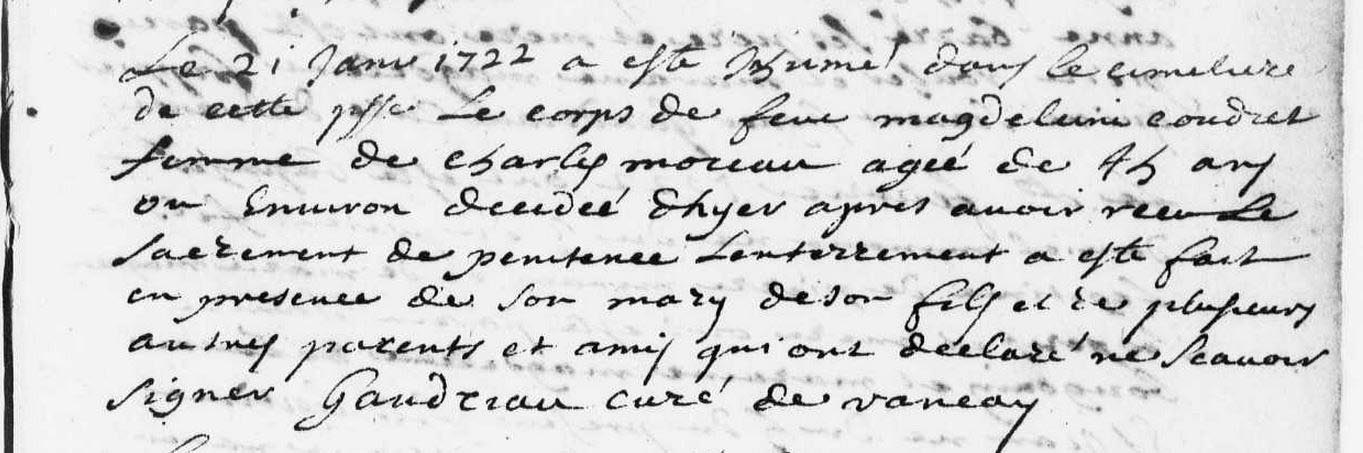 Le 21 Janv 1722 a esté Inhumé dans le cimetiere
de cette psse Le corps de feue magdeleine coudret
femme de charles moreau ageé de 45 ans
ou Environ decedeé dhyer apres avoir receu Le
sacrement de penitence Lenterrement a esté fait
en presence de son mary de son fils et de plusieurs
autres parents et amis qui ont declaré ne scavoir
signer Gaudriau curé de